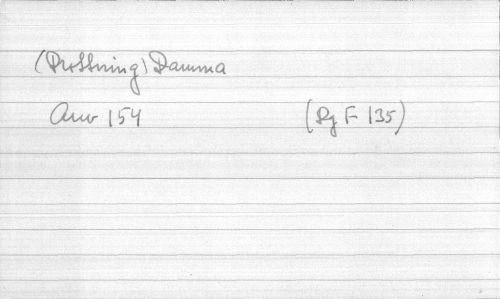 (Drottning) Damma
Anv 154 (Rg F 135)